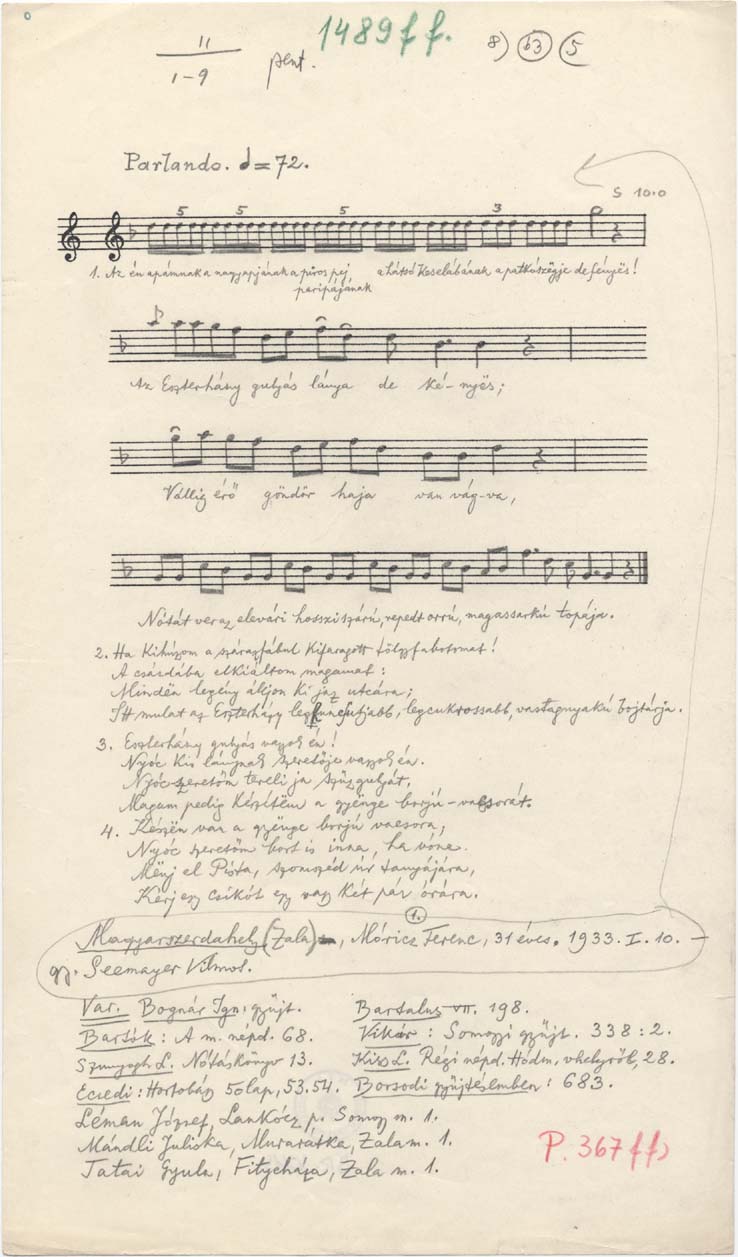 11
1-9
pent.
1489ff.
8) 63 5
Parlando. = 72.
S 10.0
5 5 5 3
1. Az én apámnak a nagyapjának a piros pej paripájának a hátsó keselábának a patkószëgje de fényës!
Az Eszterhány gulyás lánya de ké-nyës;
Vállig érő göndör haja van vág-va,
Nótát ver az elevári hossziszárú, repedt orrú, magassarkú topája.
2. Ha kihúzom a szárazfábul kifaragott tölgyfabotomat!
A csárdába elkiáltom magamat:
Mindën legény álljon ki jaz utcára;
Itt mulat az Eszterházy legfuncsutjabb, legcukrossabb, vastagnyakú bojtárja.
3. Eszterhány gulyás vagyok én!
Nyóc kis lánynak szeretője vagyok én.
Nyóc szeretőm tereli ja szűzgulyát,
Magam pedig készítëm a gyënge borjú-vacsorát.
4. Készën van a gyënge borjú vacsora,
Nyóc szeretőm bort is inna, ha vóna.
Mënj el Pista, szomszéd úr tanyájára,
Kérj egy csikót egy vagy két pár órára.
1.
Magyarszerdahely (Zala), Móricz Ferenc, 31 éves. 1933. I. 10. –
gy. Seemayer Vilmos.
Var. Bognár Ign. gyűjt. Bartalus VII. 198.
Bartók: A m. népd. 68. Vikár: Somogyi gyűjt. 338:2.
Szunyogh L. Nótáskönyv 13. Kiss L. Régi népd. Hódm. vhelyről, 28.
Ecsedi: Hortobágy 50 lap, 53.54. Borsodi gyűjtésemben: 683.
Léman József, Lankócz p. Somogy m. 1.
Mándli Juliska, Murarátka, Zala m. 1.
Tatai Gyula, Fityeháza, Zala m. 1.
P. 367 ff